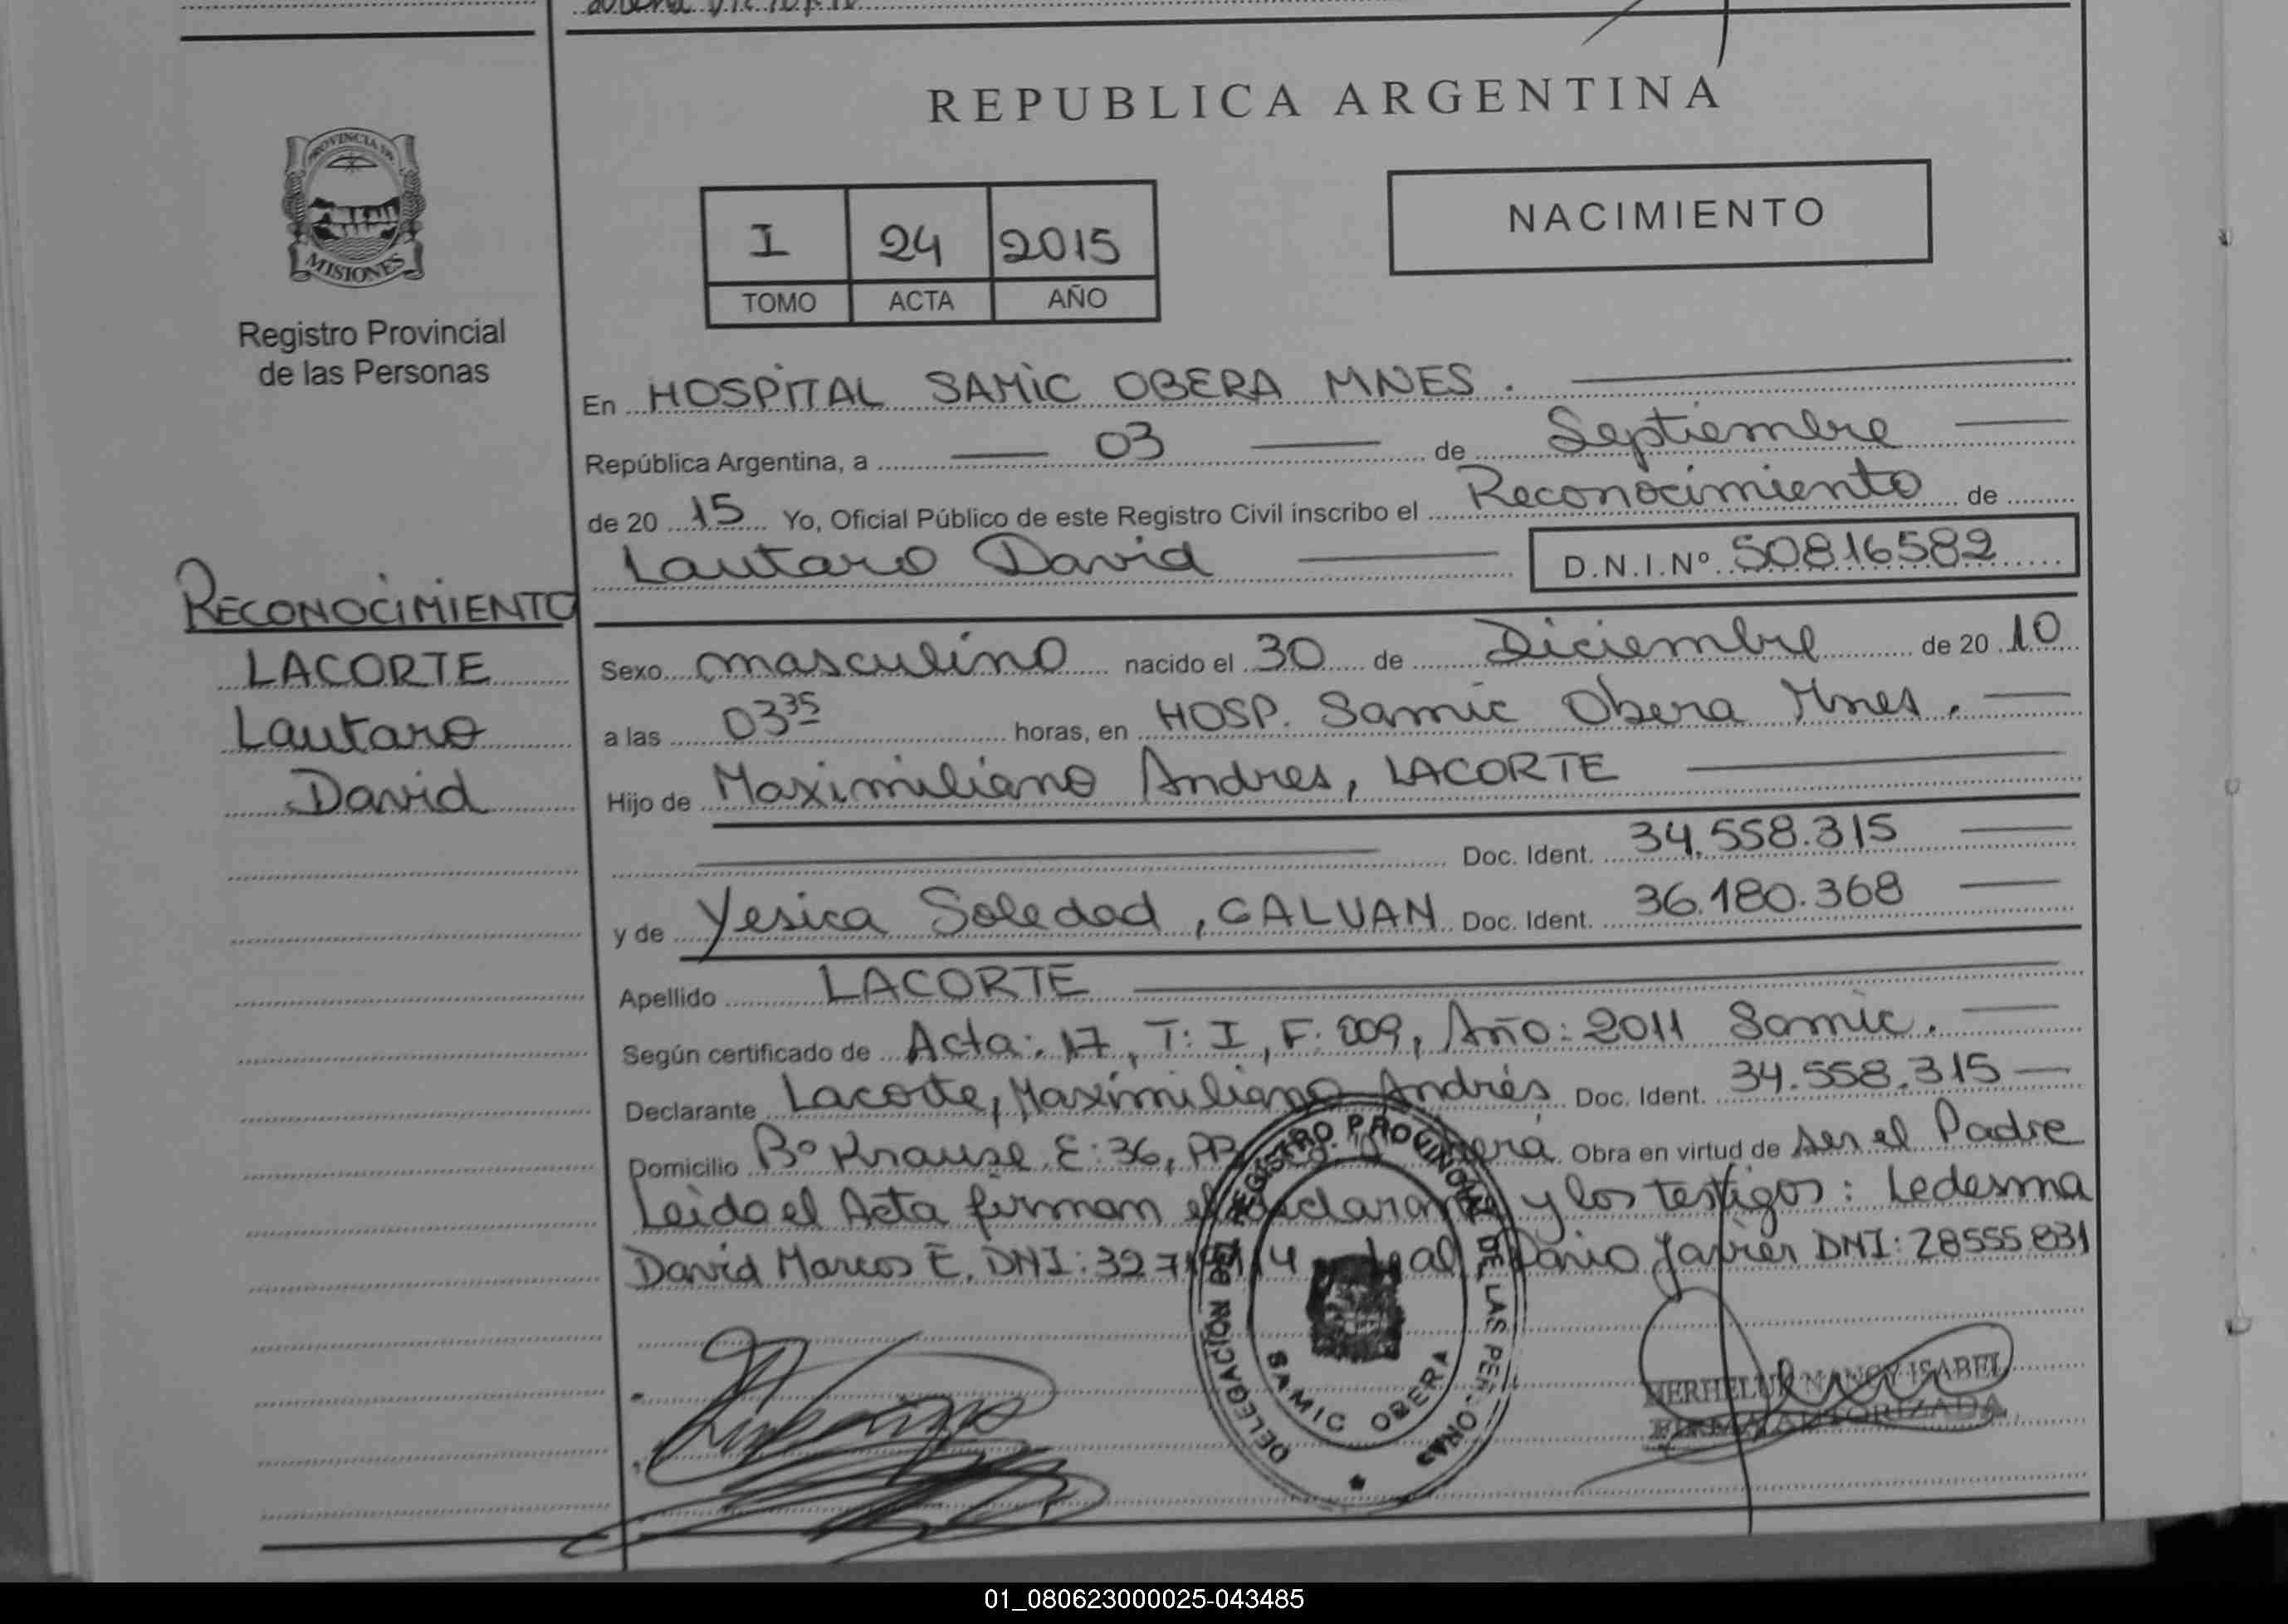 REPUBLICA ARGENTINA
PROVINCIA DE
MISIONES
Registro Provincial
de las Personas
I 24 2015
TOMO ACTA AÑO
NACIMIENTO
En HOSPITAL SAMIC OBERA MNES.
República Argentina, a 03 de Septiembre
de 20 15 Yo, Oficial Público de este Registro Civil inscribo el Reconocimiento de
Lautaro David D.N.I.Nº 50816582
RECONOCIMIENTO
LACORTE
Lautaro
David
Sexo masculino nacido el 30 de Diciembre de 20 10
a las 03 35 horas, en HOSP. Samic Obera Mnes.
Hijo de Maximiliano Andres, LACORTE
Doc. Ident. 34.558.315
y de Yesica Soledad, GALVAN Doc. Ident. 36.180.368
Apellido LACORTE
Según certificado de Acta: 17, T: I, F: 009, Año: 2011 Samic.
Declarante Lacorte, Maximiliano Andrés Doc. Ident. 34.558.315
Domicilio Bº Krause E: 36, Obra en virtud de ser el Padre
Leido el Acta firman el declarante y los testigos: Ledesma
David Marcos E. DNI: Dario Javier DNI: 28555831
DELEGACION DEL REGISTRO PROVINCIAL DE LAS PERSONAS
SAMIC OBERA
NANCY ISABEL
FIRMA AUTORIZADA
01_080623000025-043485